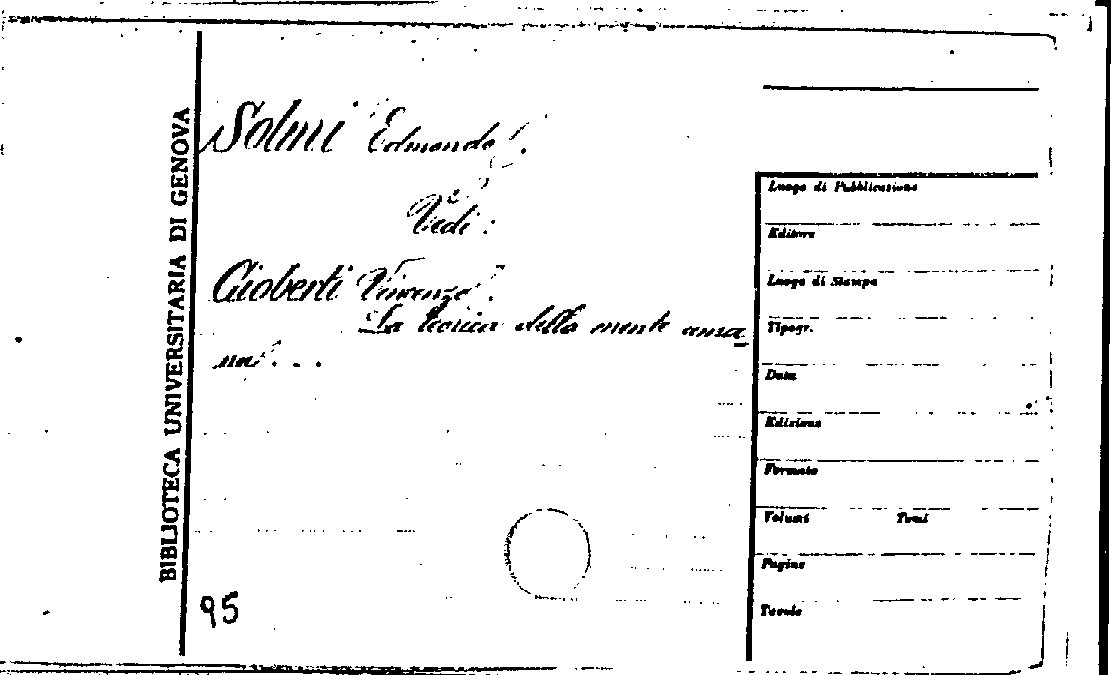 BIBLIOTECA UNIVERSITARIA DI GENOVA
Solmi Edmondo.
Vedi:
Gioberti Vincenzo.
La teorica della mente uma
na...
95
Luogo di Pubblicazione
Editore
Luogo di Stampa
Tipogr.
Data
Edizione
Formato
Volumi Tomi
Pagine
Tavole